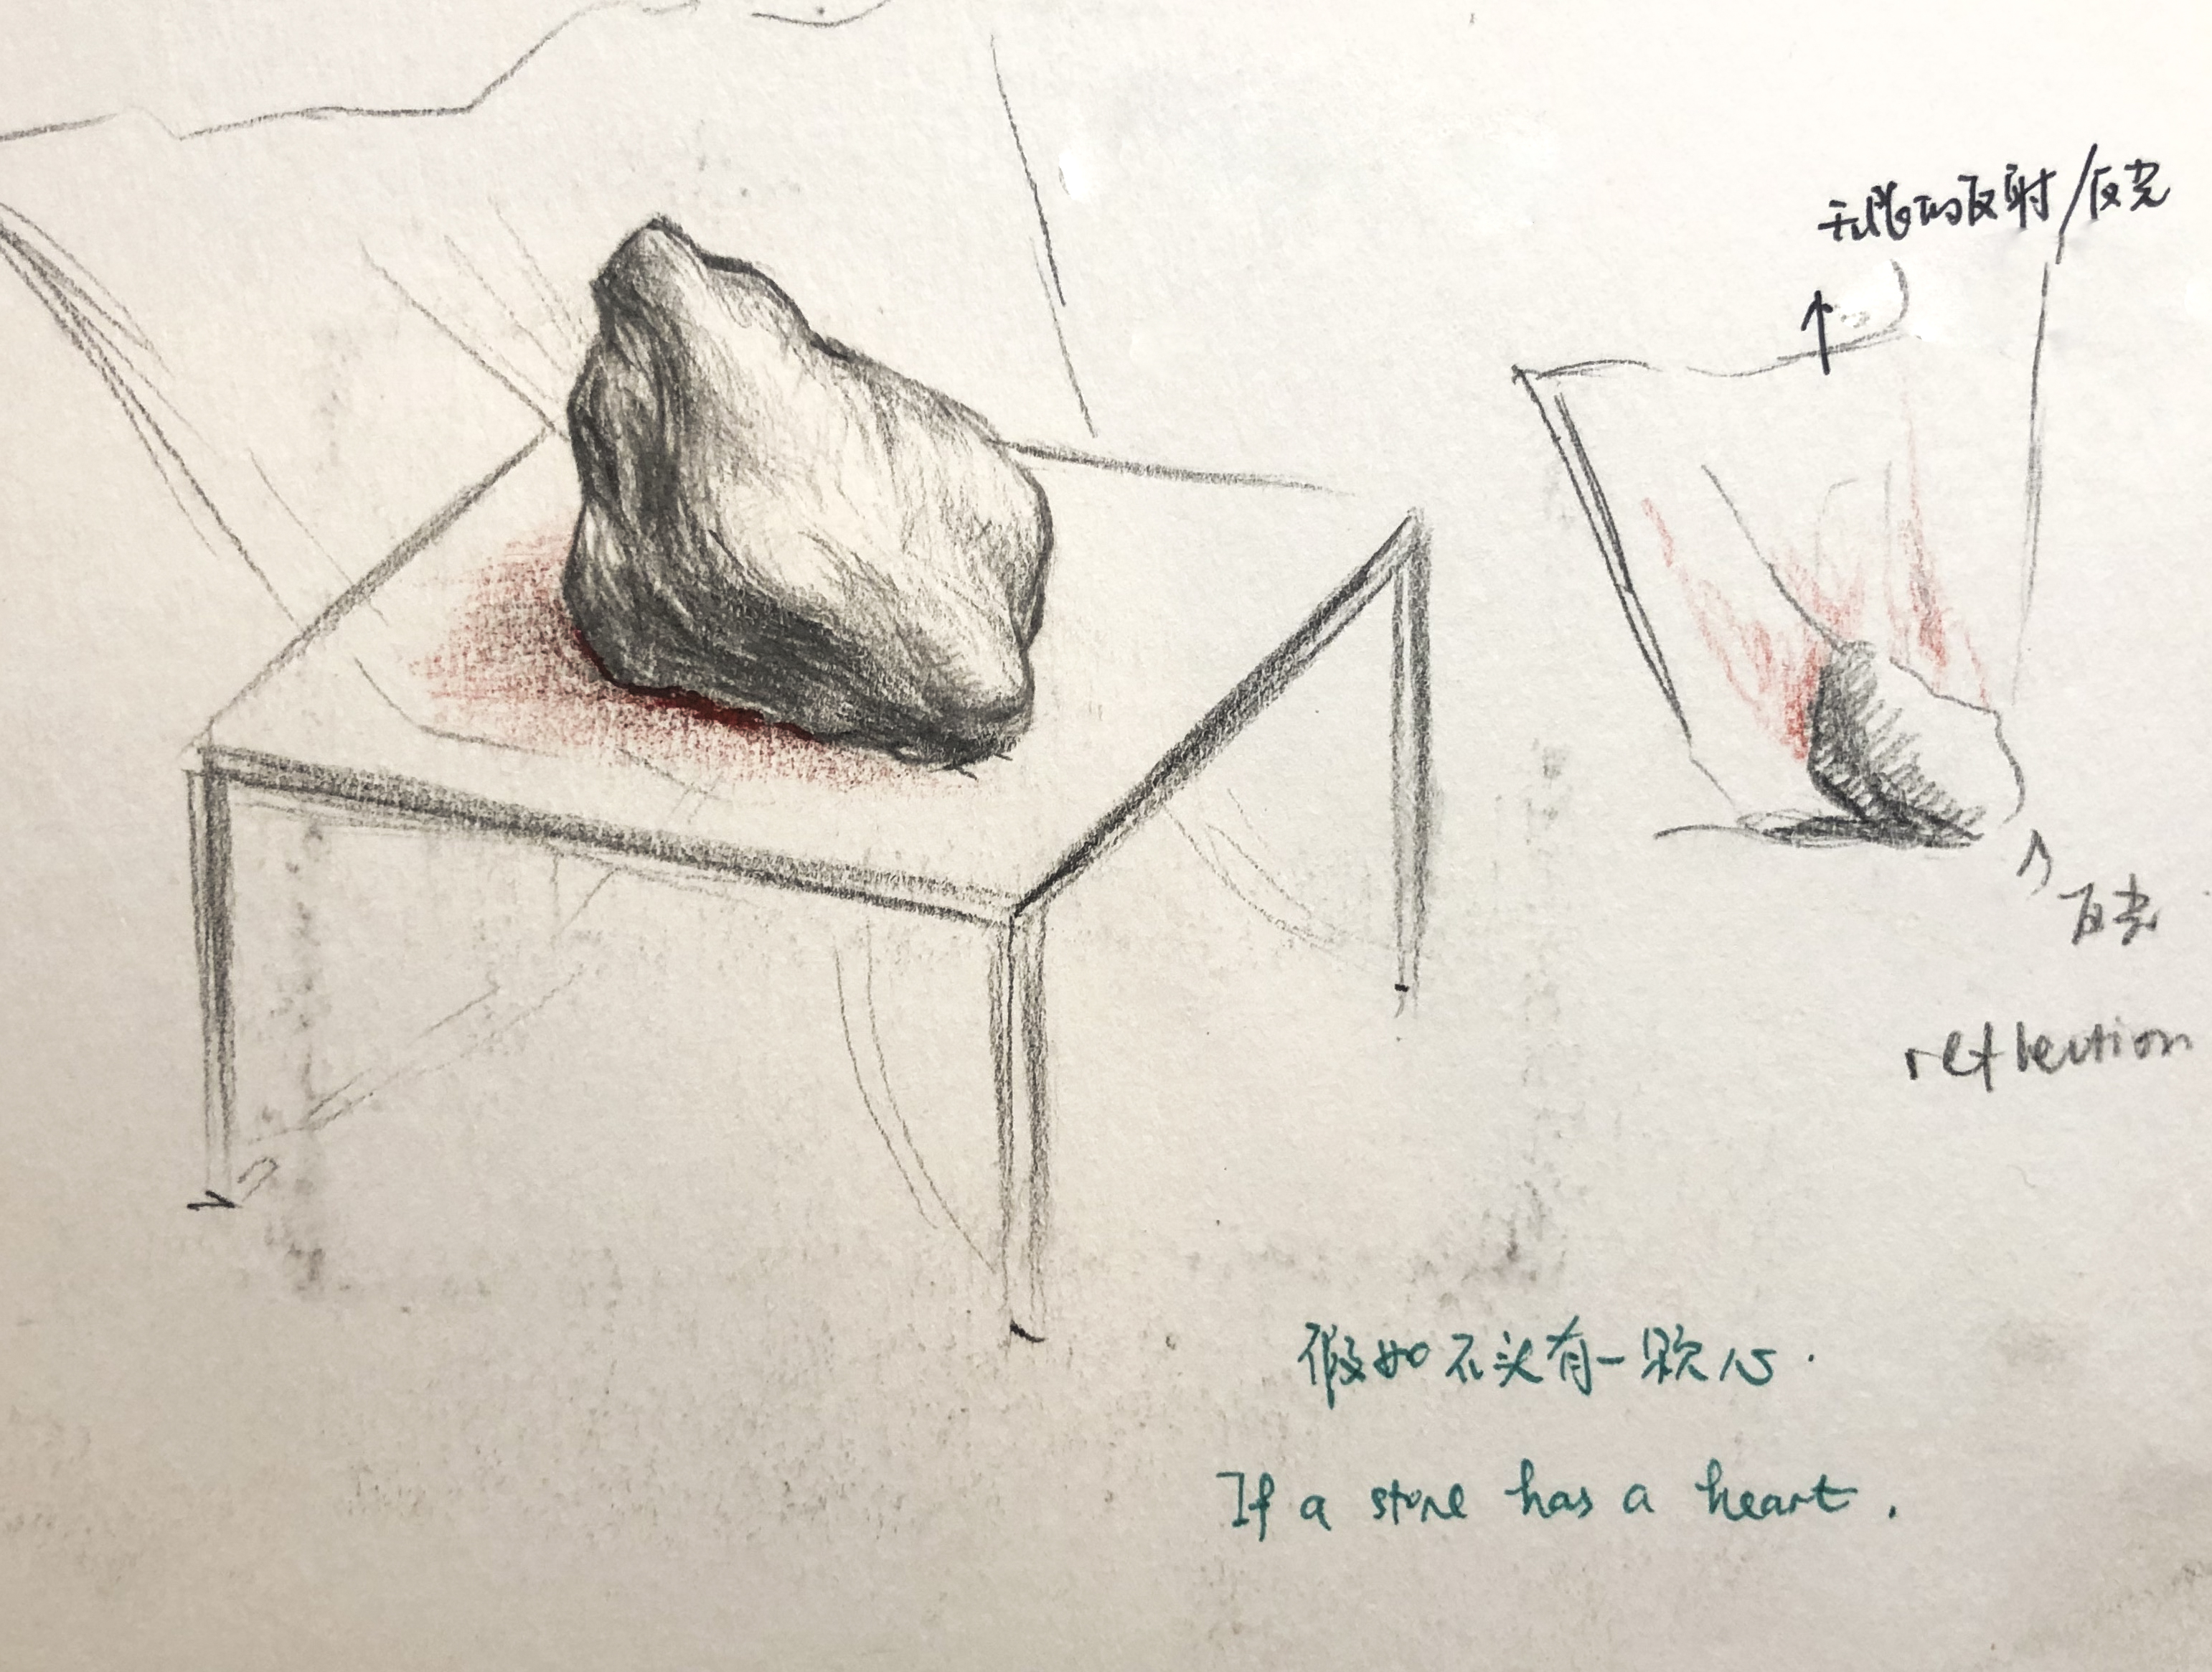 无限的反射/反光
反光
reflection
假如石头有一颗心.
If a stone has a heart.